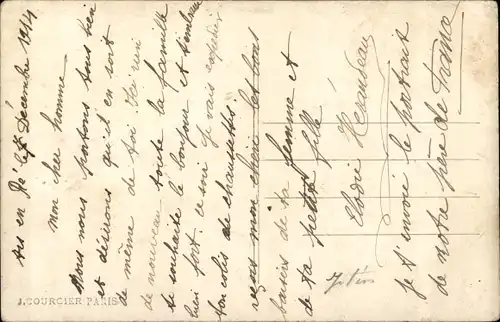 Ars en Ré le 7 Décembre 1914
Mon cher homme
Nous nous portons tous bien
et désirons qu'il en soit
de même de toi
de nouveau toute la famille
te souhaite le bonjour et t'embrasse
bien fort. ce soir je vais expédier
ton colis de chaussettes.
reçois mon chéri les bons
baisers de ta femme et
de ta petite fille
Elodie Heraudeau
je t'envoie le portrait
de notre père de France
J. COURCIER PARIS